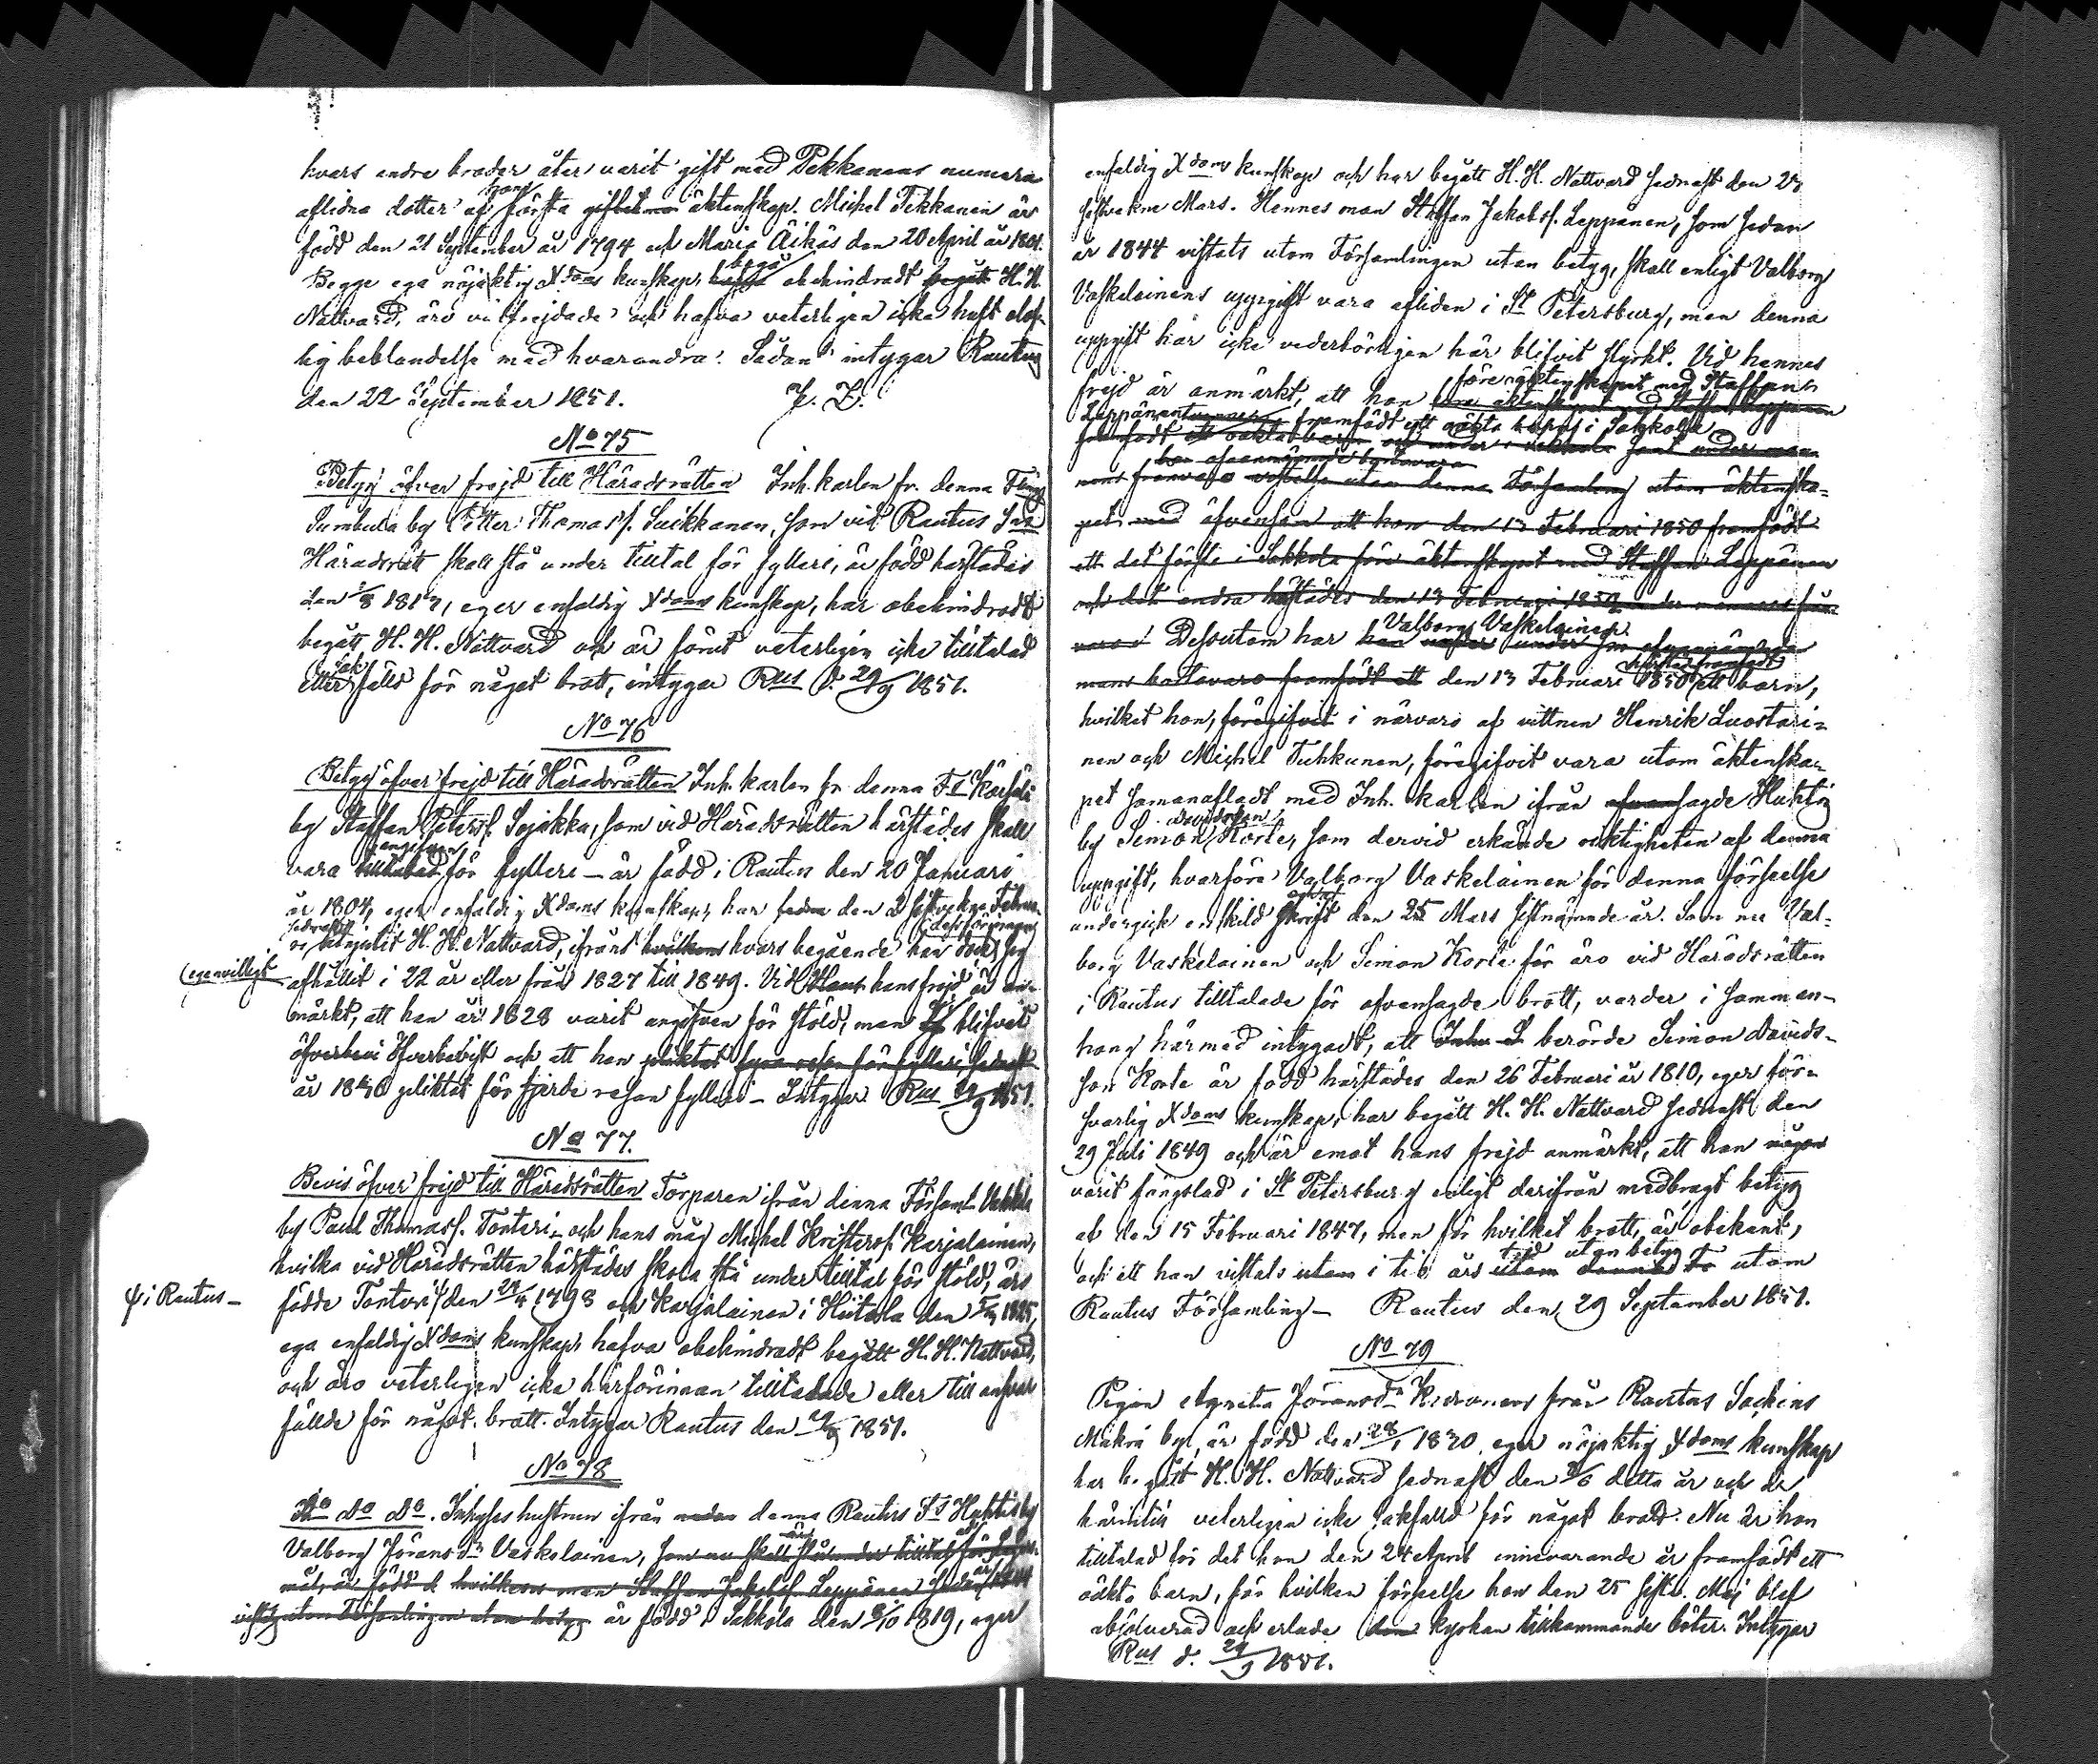 hvars andre broder åter varit gift med Pekkanens numera
aflidna dotter af hans första giftetmen äktenskap. Michel Pekkanen är
född den 21 September år 1794 och Maria Äikäs den 20 April år 1801.
Begge ega nöjaktig Xdoms kunskap, hafva begå obehindradt begått H. H.
Nattvard, äro välfrejdade och hafva veterligen icke haft olof-
lig beblandelse med hvarandra. Sådant intygar Rautus
den 22 September 1851.
No 75
Betyg öfver frejd till Häradsrätten Inh. karlen fr. denna
Sumbula by Petter Thomasf. Suikkanen, som vid Rautus
Häradsrätt skall stå under tilltal för fylleri, är född härstädes
den 1817, eger enfaldig Xdoms kunskap, har obehindradt
begått H. H. Nattvard och är förut veterligen icke tilltalad
eller sakfälld för något brott, intygar Rus d. 29/9 1851.
No 76
Betyg öfver frejd till Häradsrätten Inh. karlen fr. denna
by Staffan Petersf. Sojakka, som vid Häradsrätten härstädes skall
vara tilltalad angifven för fylleri – är född i Rautus den 20 Januari
år 1804, eger enfaldig Xdoms kunskap, har den 2 sistvekne Februa-
ri sednast begått H. H. Nattvard, ifrånt hvilkens hvars begående han dessförinnan sig
egenvilligt afhållit i 22 år eller från 1827 till 1849. Vid Hans hans frejd är an-
märkt, att han år 1828 varit angifven för stöld, men ej blifvit
öfverbevi öfverbevist och att han pliktat fyra resor för fylleri, sednast
år 1850 pliktat för fjerde resan fylleri – Intygar Rus 29/9 1851.
No 77.
Bevis öfver frejd till Häradsrätten Torparen ifrån denna Församl. Vakkila
by Paul Thomasf. Tonteri och hans måg Michel Kristersf. Karjalainen,
hvilka vid Häradsrätten härstädes skola stå under tilltal för stöld, äro
i Rautus – födde Tonteri den 1798 och Karjalainen i Hiitola den 1825,
ega enfaldig Xdoms kunskap, hafva obehindradt begått H. H. Nattvard,
och äro veterligen icke härförinnan tilltalade eller till ansvar
fällde för något brott. Intygar Rautus den 29/9 1851.
No 78
Do Do Do. Inhyses hustrun ifrån denna Rautus Huhtis by
Valborg Jöransdr Vaskelainen, som nu skall stå under tilltal för
är född d hvilkens man Staffan Jakobsf. Leppänen sedan
vistats utom Församlingen utan betyg är född i Sakkola den 2/10 1819, eger
enfaldig Xdoms kunskap och har begått H. H. Nattvard sednast den 25
sistvekne Mars. Hennes man Staffan Jakobsf. Leppänen, som sedan
år 1844 vistats utom Församlingen utan betyg, skall enligt Valborg
Vaskelainens uppgift vara afliden i St Petersburg, men denna
uppgift har icke vederbörligen här blifvit styrkt. Vid hennes
frejd är anmärkt, att hon före äktenskapet med Staffan
Leppänen framfödt ett oäkta barn i Sakkola
framfödt ett oäkta barn samt under man-
nens franvaro vistelse utom denna Församling utom äktenska-
pet med äfvensom att hon den 13 Februari 1850 framfödt
ett det förste i Sakkola före äktenskapet med Staffan Leppänen
och det andra härstädes den 13 Februari 1850 under mannens från-
varo Dessutom har Valborg Vaskelainen
mans bortovaro framfödt ett den 13 Februari 1850 härstädes framfödt ett barn,
hvilket hon, föregifvit i närvaro af vittnen Henrik Luostari-
nen och Michel Tuhkunen, föregifvit vara utom äktenska-
pet sammanafladt med Inh. karlen ifrån ofvansagde Huhtis
by Simon Davidsson Korte, som dervid erkände riktigheten af denna
uppgift, hvarföre Valborg Vaskelainen för denna förseelse
undergick enskild skrift den 25 Mars sistnämnde år. Som nu Val-
borg Vaskelainen och Simon Korte för äro vid Häradsrätten
i Rautus tilltalade för ofvansagde brott, varder i samman-
hang härmed intygadt, att Inh. S berörde Simon Davids-
son Korte är född härstädes den 26 Februari år 1810, eger för-
svarlig Xdoms kunskap, har begått H. H. Nattvard sednast den
29 Juli 1849 och är emot hans frejd anmärkt, att han någon
varit fängslad i St Petersburg enligt derifrån medbragt betyg
af den 15 Februari 1847, men för hvilket brott, är obekant,
och att han vistats utom i tio års tid utan betyg utom
Rautus Församling – Rautus den 29 September 1851.
No 79
Pigan Agneta Jöransdr Kuronens från Rautus Sockens
Mäkrä by, är född den 28/1 1820, eger nöjaktig Xdoms kunskap
har begått H. H. Nattvard sednast den detta år och är
härintill veterligen icke sakfälld för något brott. Nu är hon
tilltalad för det hon den 24 April innevarande år framfödt ett
oäkta barn, för hvilken förseelse hon den 25 sistl. Maj blef
absolverad och erlade den kyrkan tillkommande böter. Intygar
Rus d. 29/9 1851.